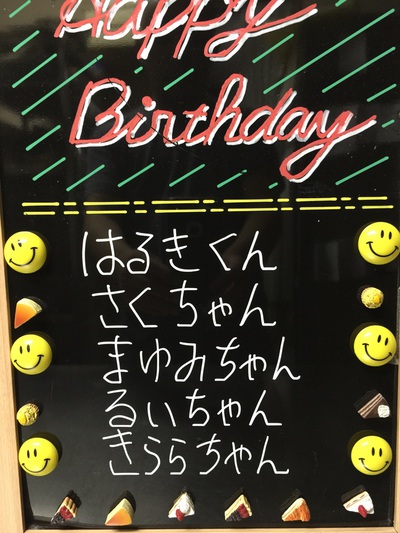 Happy
Birthday
はるきくん
さくちゃん
まゆみちゃん
るいちゃん
きららちゃん